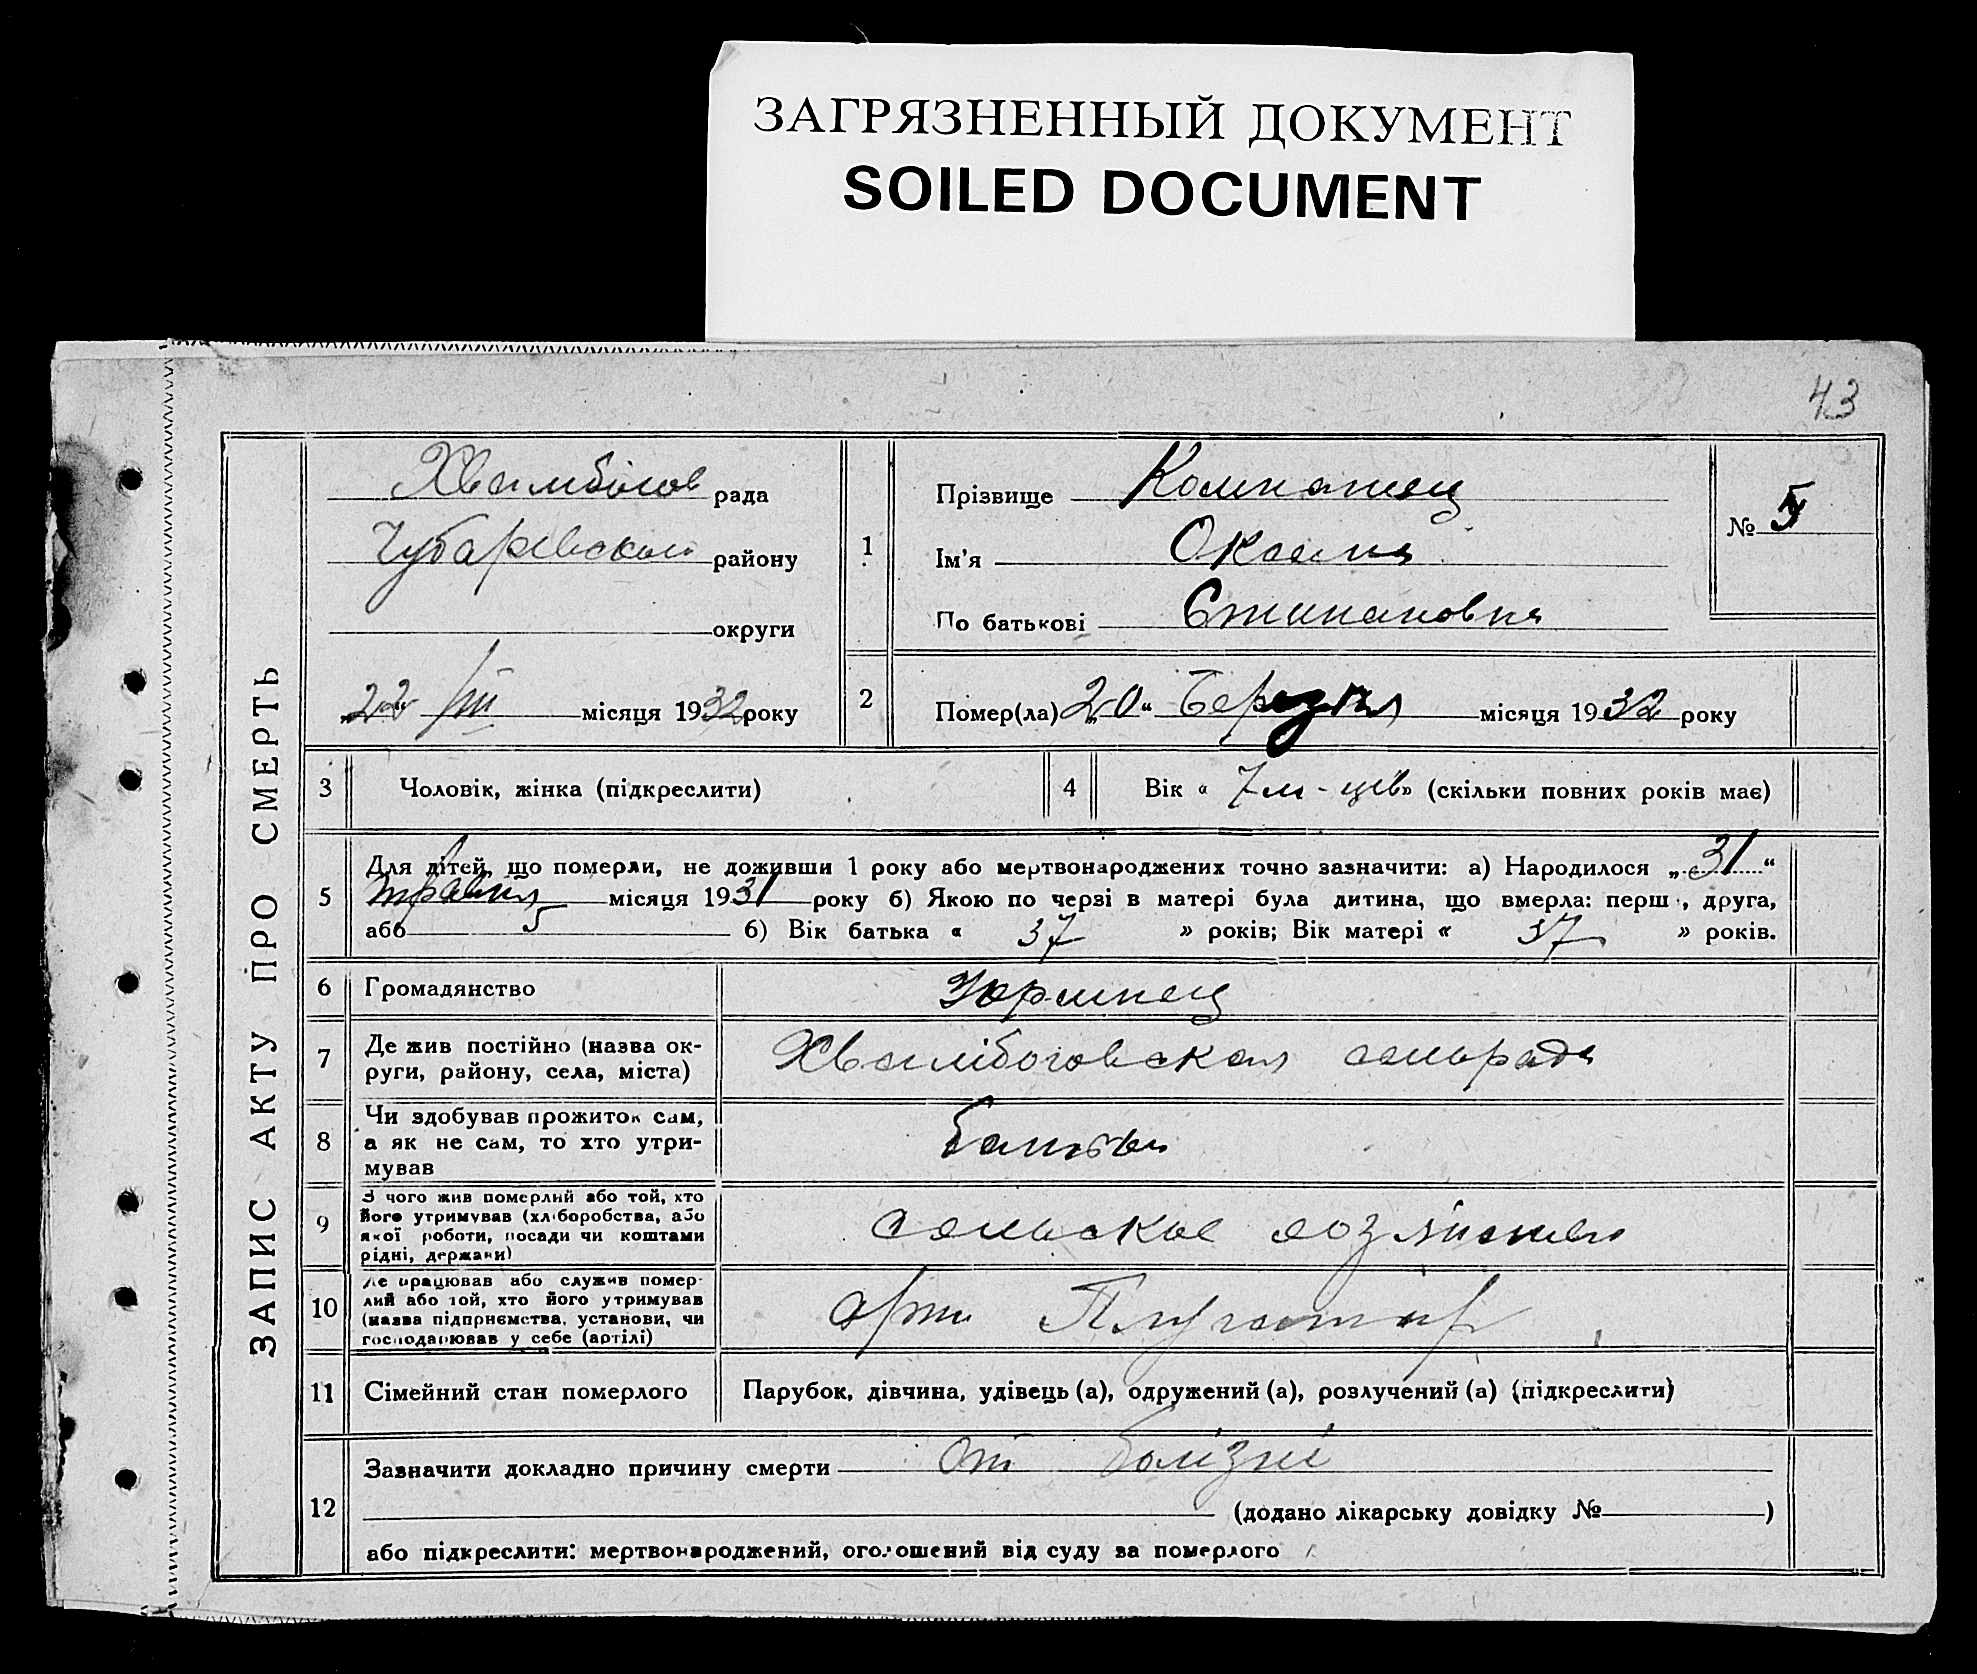 ЗАГРЯЗНЕННЫЙ ДОКУМЕНТ
SOILED DOCUMENT
43
ЗАПИС АКТУ ПРО СМЕРТЬ
рада
Чубаревского району
округи
„22“ III місяця 1932 року
1
Прізвище Компанеец
Ім'я Оксана
По батькові Степановна
№ 5
2
Помер(ла) „20“ Березня місяця 1932 року
3 Чоловік, жінка (підкреслити)
4 Вік « 7 м-ців» (скільки повних років має)
5
Для дітей, що померли, не доживши 1 року або мертвонароджених точно зазначити: а) Народилося „31“
травня місяця 1931 року б) Якою по черзі в матері була дитина, що вмерла: перш, друга,
або 5 б) Вік батька « 37 » років; Вік матері « 37 » років.
6 Громадянство Украинец
7
Де жив постійно (назва ок-
руги, району, села, міста)
сельрада
8
Чи здобував прожиток сам,
а як не сам, то хто утри-
мував
Батько
9
З чого жив померлий або той, хто
його утримував (хліборобства, або
якої роботи, посади чи коштами
рідні, держави)
сельское
10
Де працював або служив помер-
лий або той, хто його утримував
(назва підприємства, установи, чи
господарював у себе (артілі)
арті Плугатар
11 Сімейний стан померлого Парубок, дівчина, удівець (а), одружений (а), розлучений (а) (підкреслити)
12
Зазначити докладно причину смерти от болізні
(додано лікарську довідку № )
або підкреслити: мертвонароджений, оголошений від суду за померлого